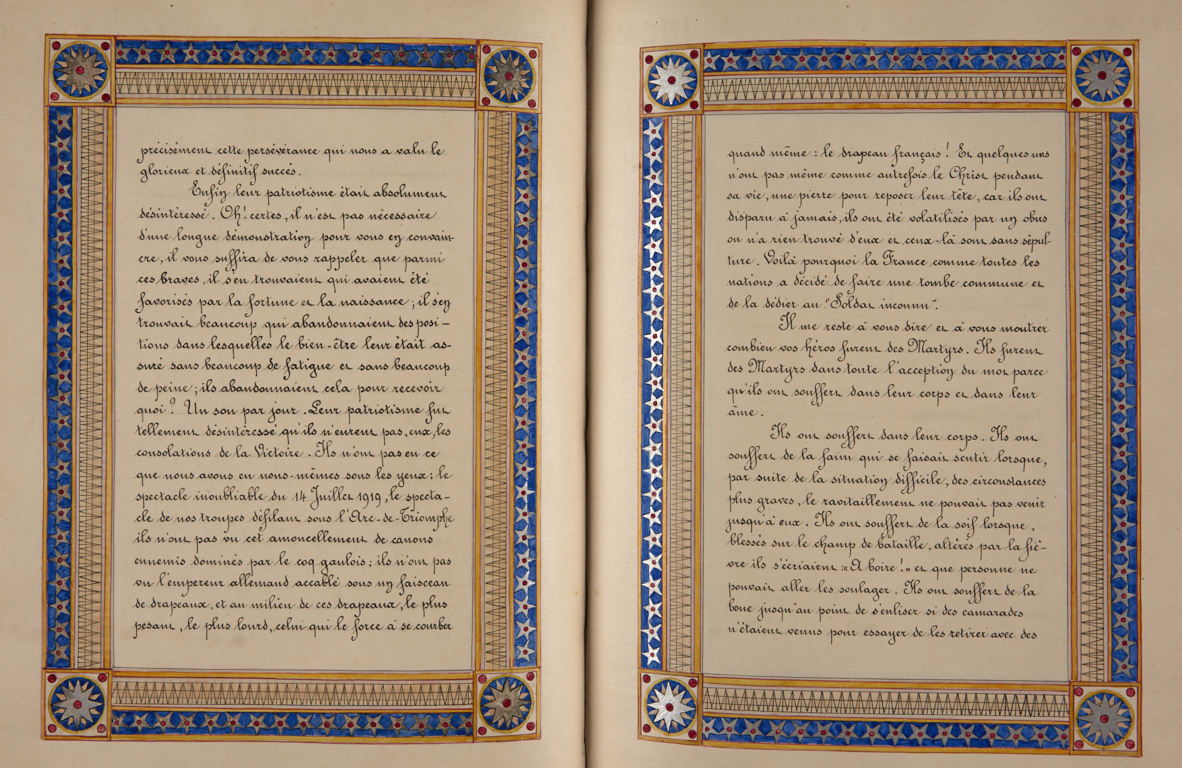 précisément cette persévérance qui nous a valu le
glorieux et définitif succès.
Enfin leur patriotisme était absolument
désintéressé. Oh! certes, il n'est pas nécessaire
d'une longue démonstration pour vous en convain-
cre, il vous suffira de vous rappeler que parmi
ces braves, il s'en trouvaient qui avaient été
favorisés par la fortune et la naissance; il s'en
trouvait beaucoup qui abandonnaient des posi-
tions dans lesquelles le bien-être leur était as-
suré sans beaucoup de fatigue et sans beaucoup
de peine; ils abandonnaient cela pour recevoir
quoi? Un sou par jour. Leur patriotisme fut
tellement désintéressé qu'ils n'eurent pas, eux, les
consolations de la Victoire. Ils n'ont pas eu ce
que nous avons eu nous-mêmes sous les yeux: le
spectacle inoubliable du 14 Juillet 1919, le specta-
cle de nos troupes défilant sous l'Arc-de-Triomphe
ils n'ont pas vu cet amoncellement de canons
ennemis dominés par le coq gaulois; ils n'ont pas
vu l'empereur allemand accablé sous un faisceau
de drapeaux, et au milieu de ces drapeaux, le plus
pesant, le plus lourd, celui qui le force à se courber
quand même: le drapeau français! Et quelques uns
n'ont pas même comme autrefois le Christ pendant
sa vie, une pierre pour reposer leur tête, car ils ont
disparu à jamais, ils ont été volatilisés par un obus
on n'a rien trouvé d'eux et ceux-là sont sans sépul-
ture. Voilà pourquoi la France comme toutes les
nations a décidé de faire une tombe commune et
de la dédier au "Soldat inconnu".
Il me reste à vous dire et à vous montrer
combien vos héros furent des Martyrs. Ils furent
des Martyrs dans toute l'acception du mot parce
qu'ils ont souffert dans leur corps et dans leur
âme.
Ils ont souffert dans leur corps. Ils ont
souffert de la faim qui se faisait sentir lorsque,
par suite de la situation difficile, des circonstances
plus graves, le ravitaillement ne pouvait pas venir
jusqu'à eux. Ils ont souffert de la soif lorsque,
blessés sur le champ de bataille, altérés par la fiè-
vre ils s'écriaient: "A boire!" et que personne ne
pouvait aller les soulager. Ils ont souffert de la
boue jusqu'au point de s'enliser si des camarades
n'étaient venus pour essayer de les retirer avec des